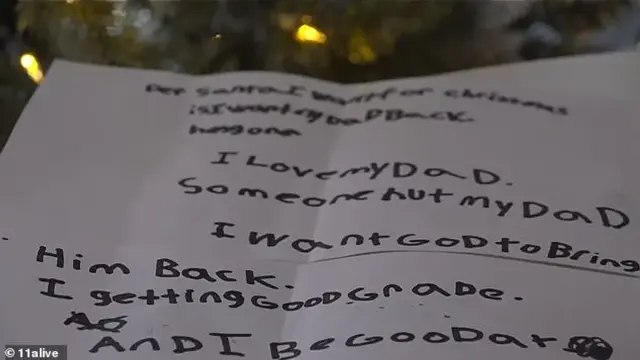 Der Santa I want for christmas
is I want my DaD Back.
I Love my DaD.
Someone hut my DaD
I want GoD to Bring
Him Back.
I getting GooD GraDe.
AnD I Be GooD at
© 11alive